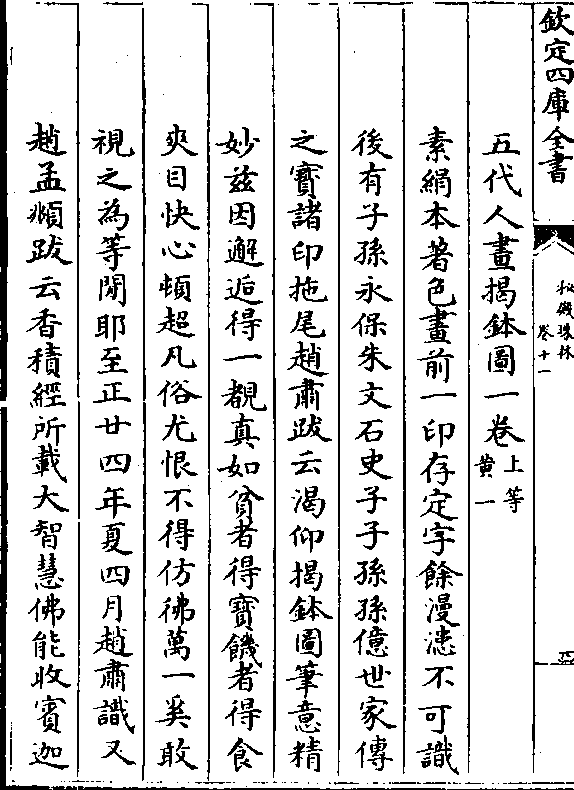 欽定四庫全書
秘殿珠林
卷十一
五代人畫揭鉢圖一卷上等
黄一
素絹本著色畫前一印存定字餘漫漶不可識
後有子孫永保朱文石史子子孫孫億世家傳
之寳諸印拖尾趙肅跋云渴仰揭鉢圖筆意精
妙兹因邂逅得一覩真如貧者得寳饑者得食
爽目快心頓超凡俗尤恨不得仿彿萬一奚敢
視之為等閒耶至正廿四年夏四月趙肅識又
趙孟頫跋云香積經所載大智慧佛能收賓迦